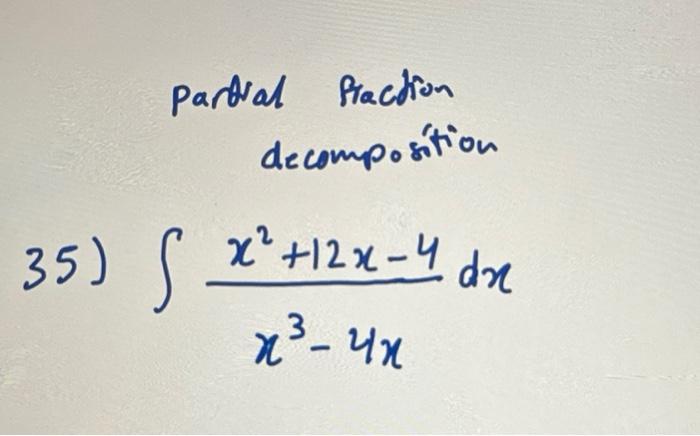 Partial fraction
decomposition
35) ∫ x²+12x-4 dx
x³-4x